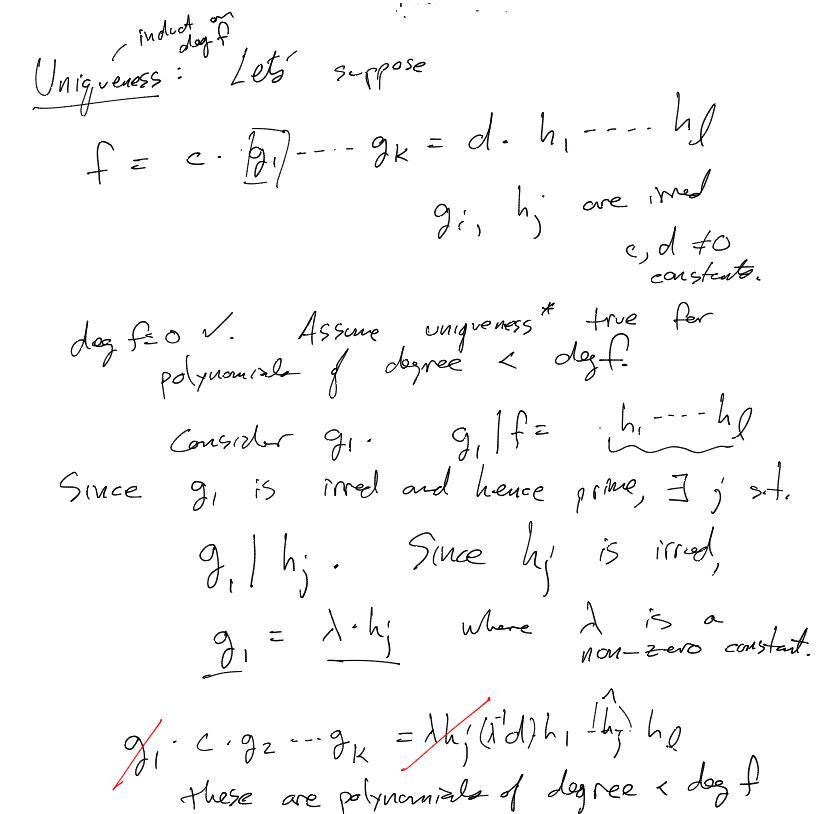 induct on
deg f
Uniqueness : Lets' suppose
f = c · g₁ ---- gₖ = d · h₁ ---- hₗ
gᵢ, hⱼ are irred
c, d ≠ 0
constants.
deg f = 0 ✓. Assume uniqueness* true for
polynomials of degree < deg f.
Consider g₁. g₁ | f = h₁ ---- hₗ
Since g₁ is irred and hence prime, ∃ j s.t.
g₁ | hⱼ. Since hⱼ is irred,
g₁ = λ · hⱼ where λ is a
non-zero constant.
g₁ · c · g₂ --- gₖ = λhⱼ (λ⁻¹d) h₁ -- ĥⱼ -- hₗ
these are polynomials of degree < deg f